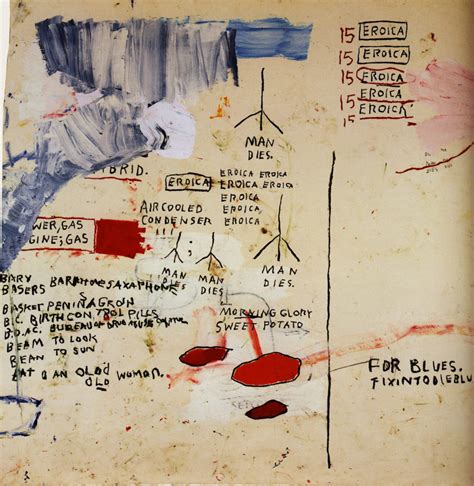 15 EROICA
15 EROICA
15 EROICA
15 EROICA
15 EROICA
MAN
DIES.
BRID.
EROICA
EROICA EROICA
EROICA EROICA
EROICA,
EROICA,
EROICA
AIRCOOLED
CONDENSER
WER, GAS
GINE; GAS
MAN
DIES
MAN
DIES.
MAN
DIES.
BARY
BASERS BARITONE SAXAPHONE
BASKET PENINAGRON
B.C. BIRTHCON, TROL PILLS
B.D.A.C. BUREAU OF DRUG ABUSE
BEAM TO LOOK
BEAN TO SUN
BAT AN OLOD
OLD WOMAN.
MORNING GLORY
SWEET POTATO
FOR BLUES.
FIXINTODIEBLU